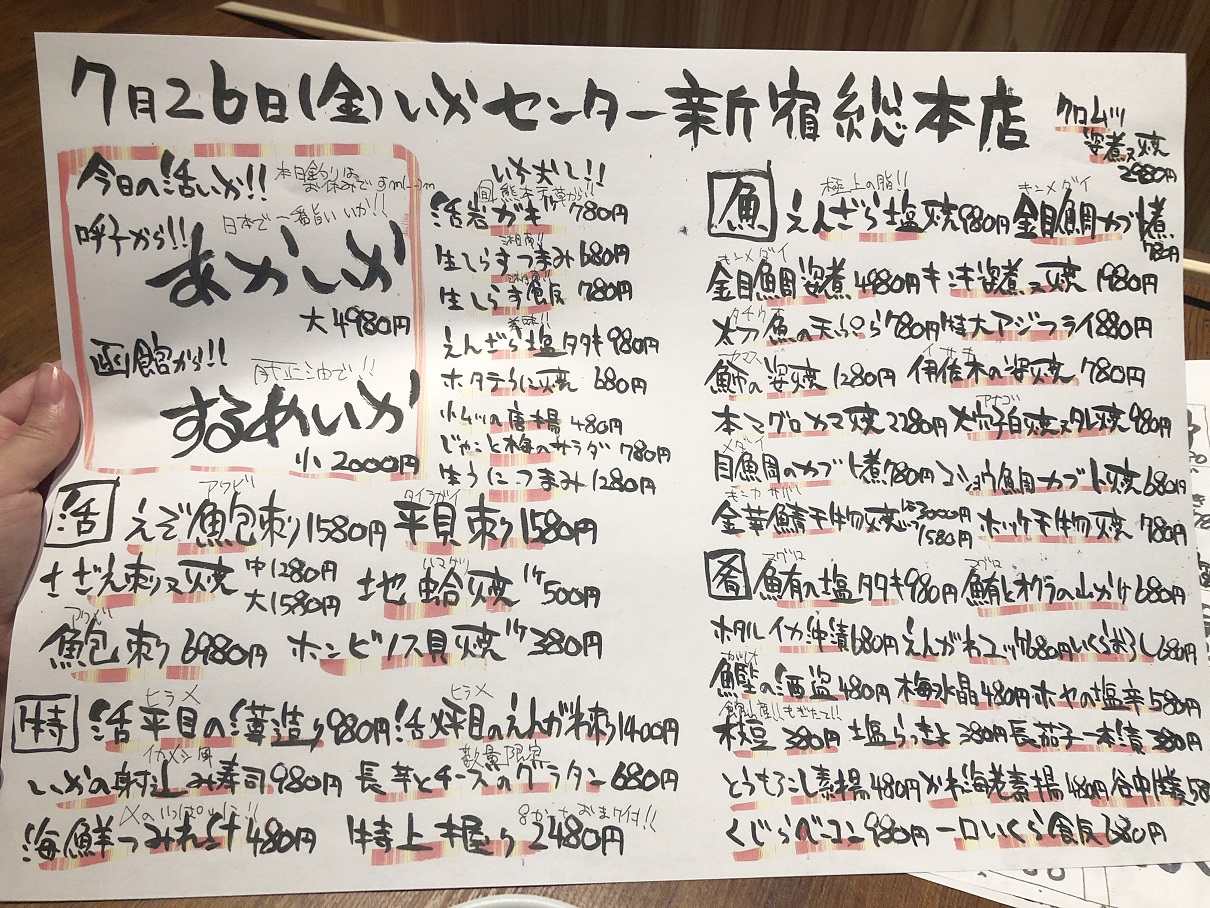 7月26日(金)いかセンター新宿総本店
クロムツ
姿煮又焼
2980円
今日の活いか!!
本日釣りは
お休みです m(_ _)m
呼子から!!
日本で一番旨いいか!!
あかいか
大4980円
函館から!!
肝正油で!!
するめいか
小2000円
いちおし!!
熊本天草から!!
活岩がき 1ケ780円
湘南!!
生しらすつまみ680円
湘南!!
生しらす飯780円
美味!!
えんざら塩タタキ980円
ホタテうに焼680円
小ムツの唐揚480円
じゃこと梅のサラダ780円
生うにつまみ1280円
活
アワビ
えぞ鮑刺り1580円
タイラガイ
平貝刺り1580円
さざえ刺又焼
中1280円
大1580円
ハマグリ
地蛤焼1ケ500円
アワビ
鮑刺り6980円
ホンビノス貝焼1ケ380円
特
ヒラメ
活平目の薄造り980円
ヒラメ
活平目のえんがわ刺1400円
イカメシ風
いかの射込み寿司980円
数量限定
長芋とチーズのグラタン680円
海鮮つみれ汁480円
特上握り2480円
魚
極上の脂!!
えんざら塩焼980円
キンメダイ
金目鯛カブト煮780円
キンメダイ
金目鯛姿煮4980円
キンキ姿煮又焼1980円
タチウオ
太刀魚の天ぷら780円
特大アジフライ880円
カマス
魳の姿焼1280円
イサキ
伊佐木の姿焼780円
本マグロカマ焼2280円
アナゴ
大穴子白焼又タレ焼980円
メダイ
目鯛のカブト煮780円
コショウ鯛カブト焼680円
キンカサバ
金華鯖干物焼
1本3000円
1580円
ホッケ干物焼780円
肴
マグロ
鮪の塩タタキ980円
マグロ
鮪とオクラの山かけ680円
ホタルイカ沖漬680円
えんがわユッケ680円
いくらおろし680円
カツオ
鰹の酒盗480円
梅水晶480円
ホヤの塩辛580円
枝豆380円
塩らっきょ380円
長茄子一本漬380円
とうもろこし素揚480円
かわ海老素揚480円
くじらベーコン980円
一口いくら飯680円